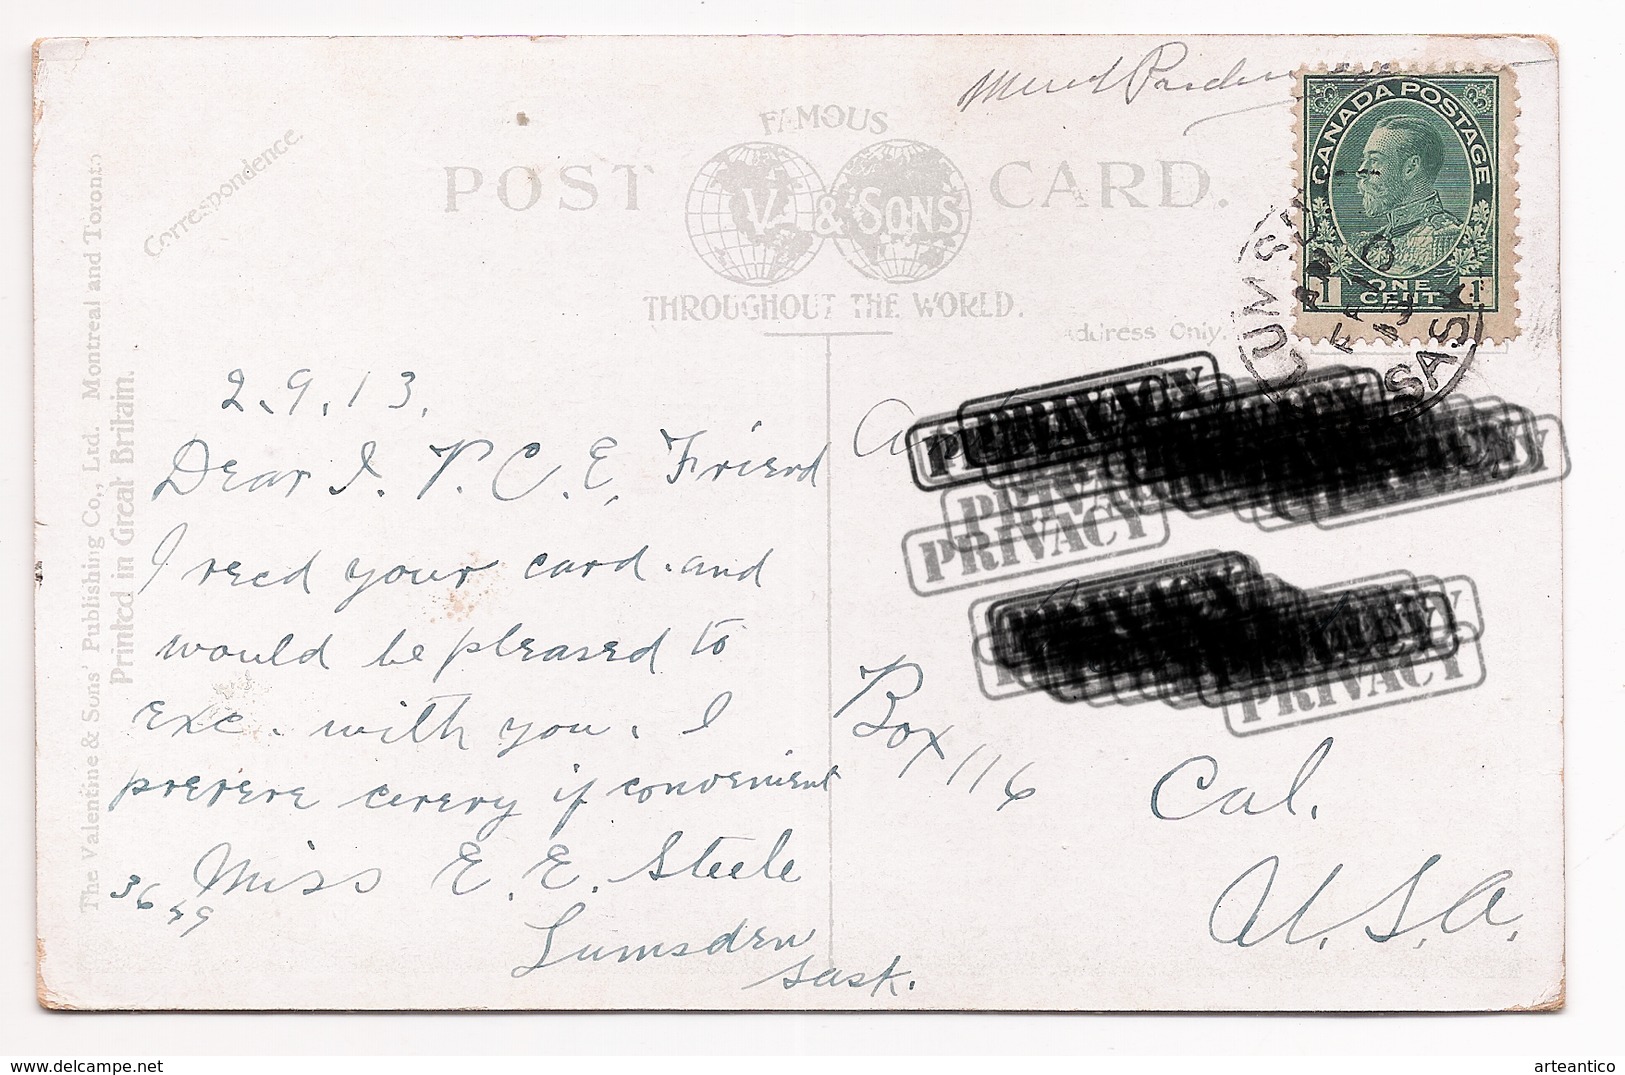 Correspondence.
FAMOUS
POST CARD.
V. & SONS
THROUGHOUT THE WORLD.
Address Only.
CANADA POSTAGE
1 ONE CENT 1
LUMSDEN
SASK
PRIVACY
PRIVACY
PRIVACY
PRIVACY
The Valentine & Sons' Publishing Co., Ltd. Montreal and Toronto
Printed in Great Britain.
2.9.13.
Dear I. P. C. E. Friend
I recd your card. and
would be pleased to
exc. with you. I
prerere cerery if convenient
Miss E. E. Steele
3649
Lumsden
Sask.
Box 116
Cal.
U.S.A.
arteantico